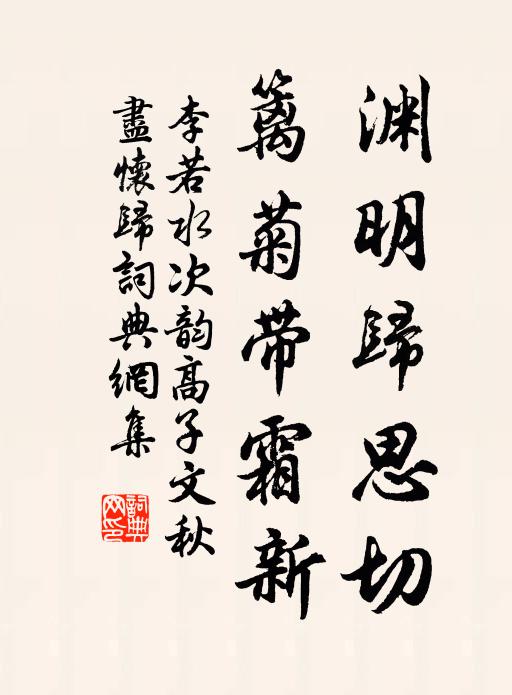 渊明歸思切
篱菊带霜新
李若水次韵高子文秋
盡懷歸詞典網集
詞典
网印